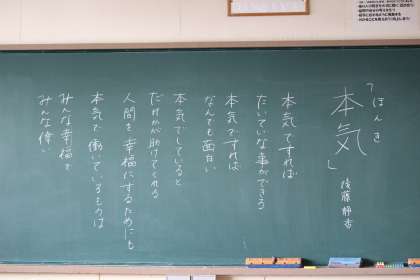 「ほんき
本気」
後藤静香
本気ですれば
たいていな事ができる
本気ですれば
なんでも面白い
本気でしていると
だれかが助けてくれる
人間を幸福にするためにも
本気で働いているものは
みんな幸福で
みんな偉い